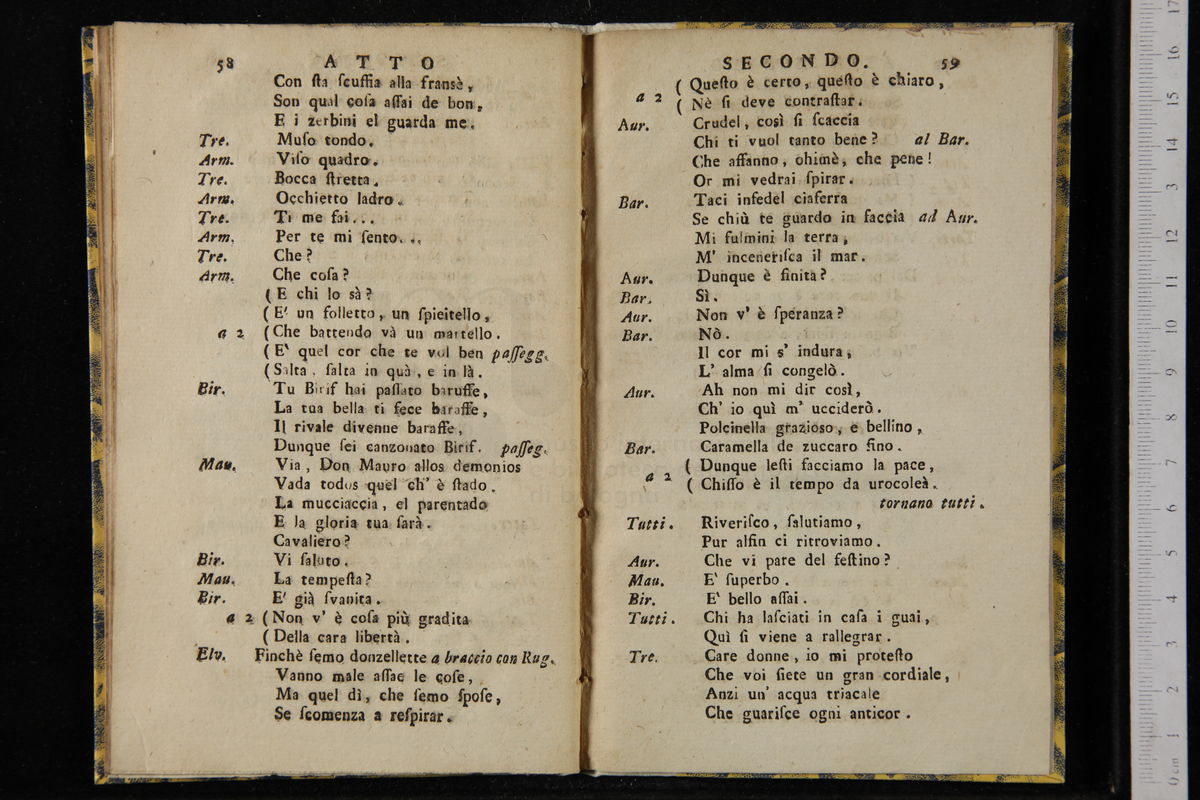 58 ATTO
Con ſta ſcuffia alla fransè,
Son qual coſa aſſai de bon,
E i zerbini el guarda me.
Tre. Muſo tondo.
Arm. Viſo quadro.
Tre. Bocca ſtretta.
Arm. Occhietto ladro.
Tre. Ti me fai...
Arm. Per te mi ſento...
Tre. Che?
Arm. Che coſa?
( E chi lo sà?
( E' un folletto, un ſpieitello,
a 2 ( Che battendo và un martello.
( E' quel cor che te vol ben paſſegg.
( Salta, ſalta in quà, e in là.
Bir. Tu Birif hai paſſato baruffe,
La tua bella ti fece baraffe,
Il rivale divenne baraffe,
Dunque ſei canzonato Birif. paſſeg.
Mau. Via, Don Mauro allos demonios
Vada todos quel ch' è ſtado.
La mucciaccia, el parentado
E la gloria tua ſarà.
Cavaliero?
Bir. Vi ſaluto.
Mau. La tempeſta?
Bir. E' già ſvanita.
a 2 ( Non v' è coſa più gradita
( Della cara libertà.
Elv. Finchè ſemo donzellette a braccio con Rug.
Vanno male aſſae le coſe,
Ma quel dì, che ſemo ſpoſe,
Se ſcomenza a reſpirar.
SECONDO. 59
( Queſto è certo, queſto è chiaro,
a 2
( Nè ſi deve contraſtar.
Aur. Crudel, così ſi ſcaccia
Chi ti vuol tanto bene? al Bar.
Che affanno, ohimè, che pene!
Or mi vedrai ſpirar.
Bar. Taci infedel ciaferra
Se chiù te guardo in faccia ad Aur.
Mi fulmini la terra,
M' inceneriſca il mar.
Aur. Dunque è finita?
Bar. Sì.
Aur. Non v' è ſperanza?
Bar. Nò.
Il cor mi s' indura,
L' alma ſi congelò.
Aur. Ah non mi dir così,
Ch' io quì m' ucciderò.
Polcinella grazioso, e bellino,
Bar. Caramella de zuccaro fino.
( Dunque leſti facciamo la pace,
a 2
( Chiſſo è il tempo da urocoleà.
tornano tutti.
Tutti. Riveriſco, ſalutiamo,
Pur alfin ci ritroviamo.
Aur. Che vi pare del feſtino?
Mau. E' ſuperbo.
Bir. E' bello aſſai.
Tutti. Chi ha laſciati in caſa i guai,
Quì ſi viene a rallegrar.
Tre. Care donne, io mi proteſto
Che voi ſiete un gran cordiale,
Anzi un' acqua triacale
Che guariſce ogni anticor.